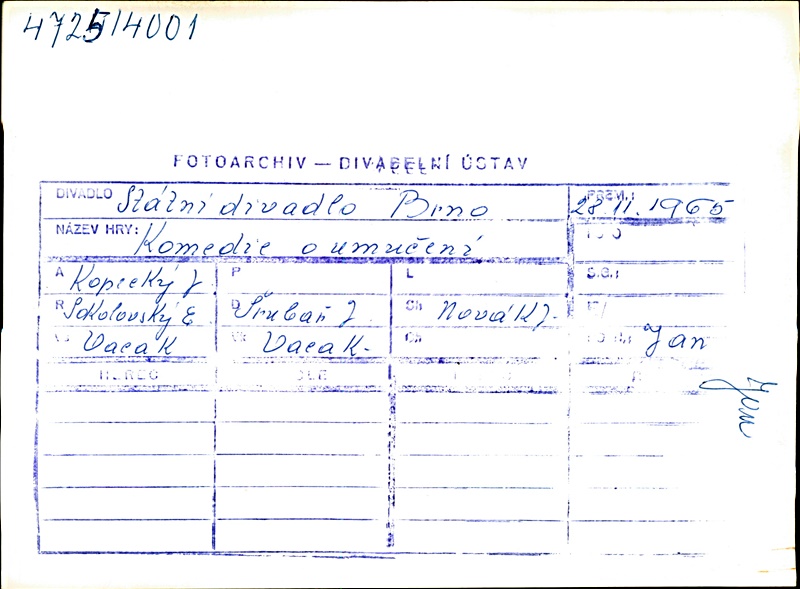 4725/4001
FOTOARCHIV — DIVADELNÍ ÚSTAV
DIVADLO Státní divadlo Brno PREM.: 28.11.1965
NÁZEV HRY: Komedie o umučení FOTO
A Kopecký J P L
R Sokolovský E D Šrubař J Sh Novák J.
Vaca K Vaca K. Jan
HEREC
Jan